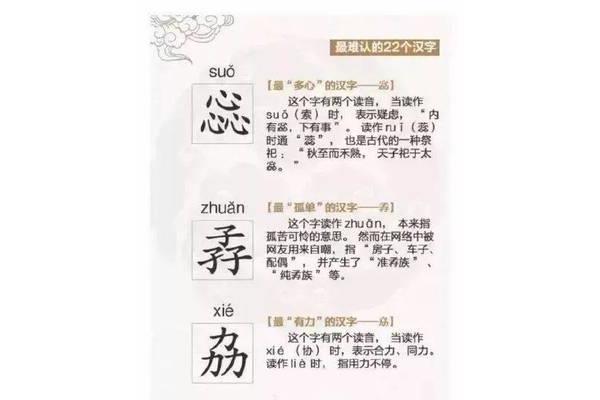 最难认的22个汉字
suǒ
惢
【最“多心”的汉字——惢】
这个字有两个读音，当读作
suǒ（索）时，表示疑虑，“内
有惢，下有事”。读作ruǐ（蕊）
时通“蕊”，也是古代的一种祭
祀：“秋至而禾熟，天子祀于太
惢。”
zhuǎn
孨
【最“孤单”的汉字——孨】
这个字读作zhuǎn，本来指
孤苦可怜的意思。然而在网络中被
网友用来自嘲，指“房子、车子、
配偶”，并产生了“准孨族”、
“纯孨族”等。
xié
劦
【最“有力”的汉字——劦】
这个字有两个读音，当读作
xié（协）时，表示合力、同力。
读作liè时，指用力不停。